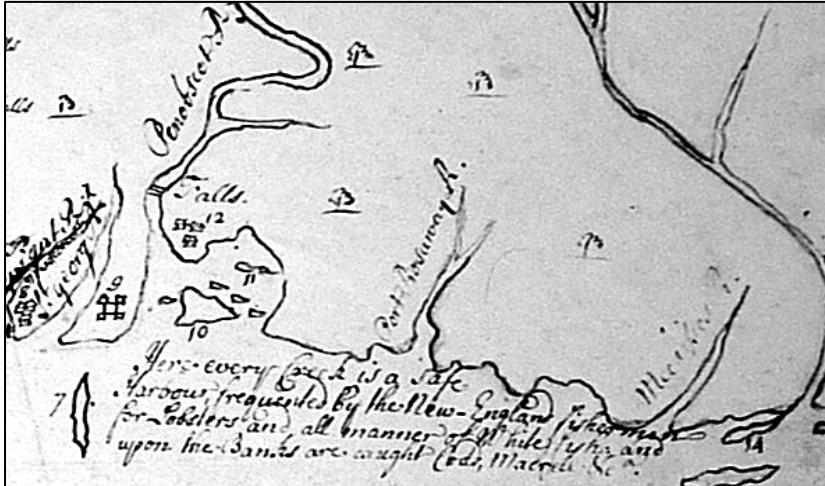 Penobscot R.
Falls.
12
St. georg R.
9
11
10
7
Port Rosaway R.
R.
14
Here every Creek is a safe
Harbour, frequented by the New-England fisher men
for Lobsters and all manner of White fish, and
upon the Banks are caught Cods, Macrell &ca.